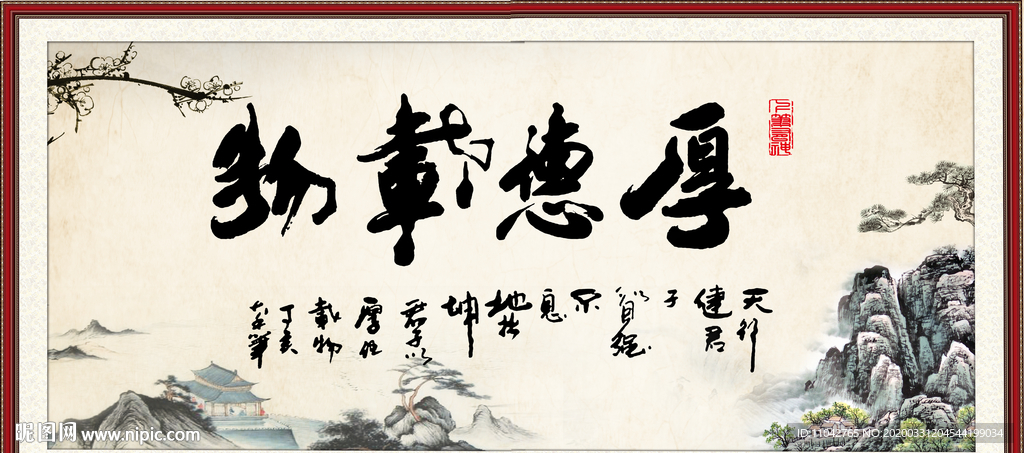 厚德載物
天行
健君
子
以自强
不
息
地势
坤
君子以
厚德
載物
丁亥
昵图网 www.nipic.com
ID:11042765 NO.20200331204544199034